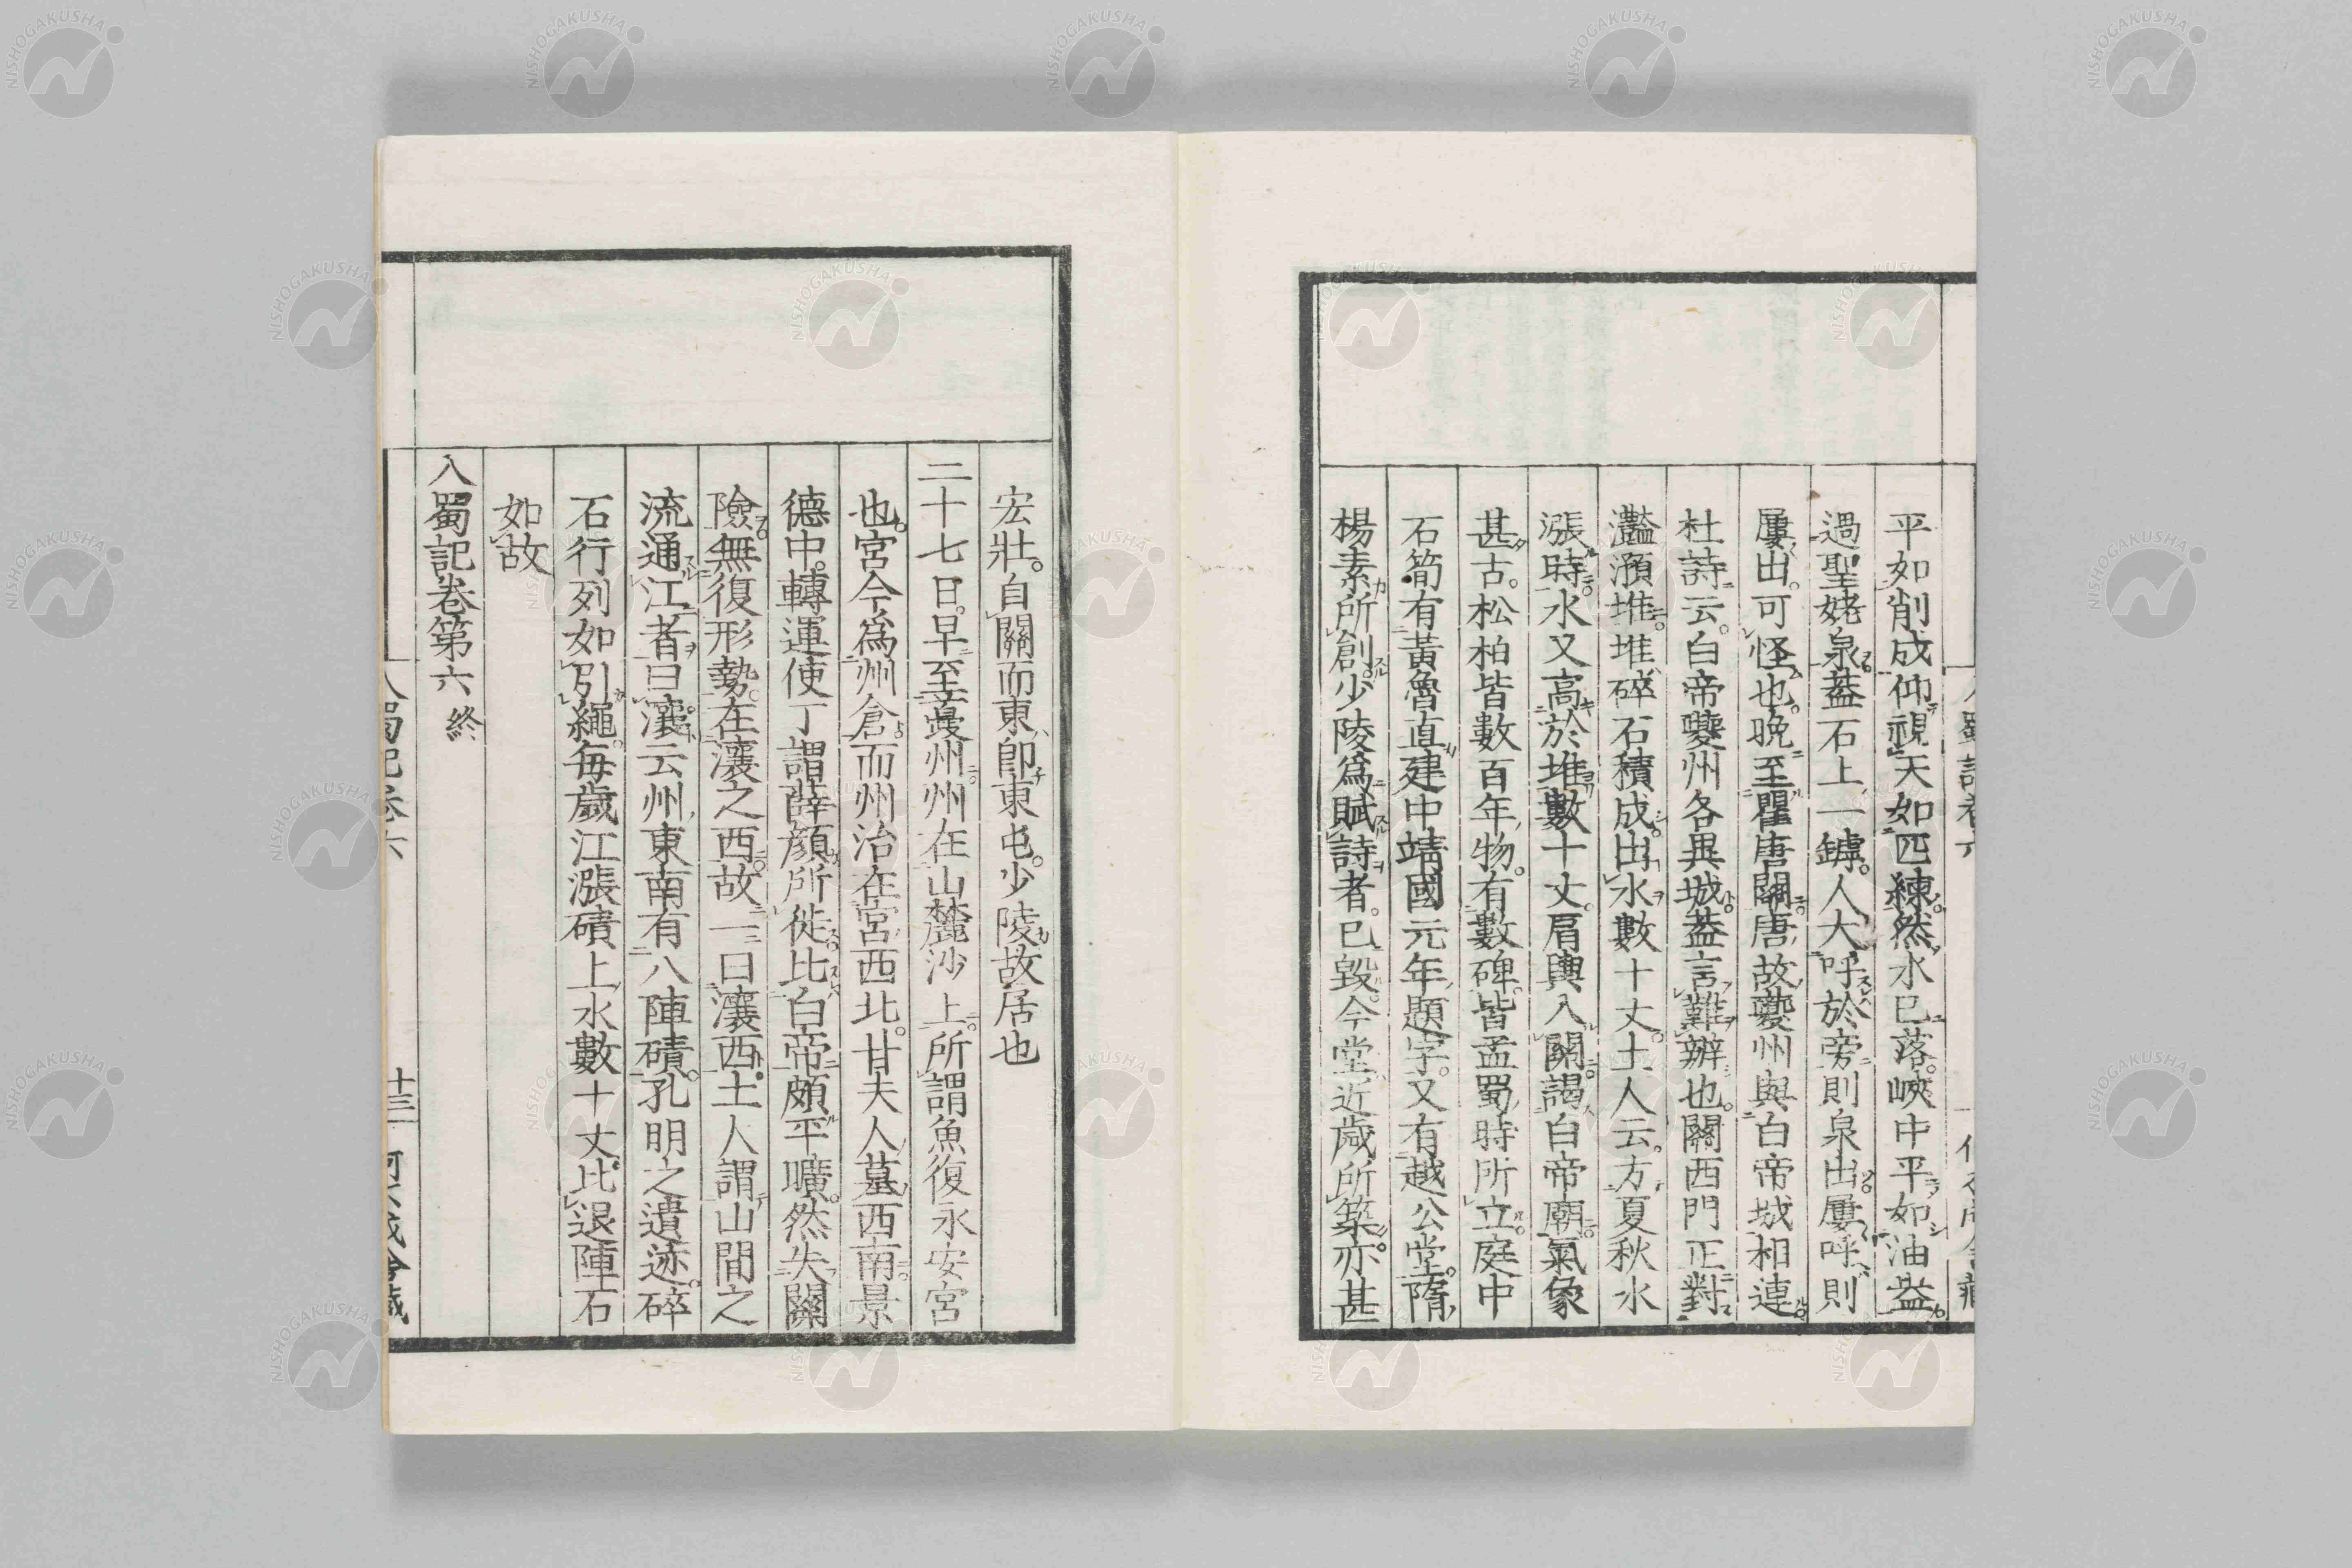 平如削成仰視天如匹練然水已落峽中平如油盎
過聖姥泉葢石上一鏬人大呼於旁則泉出屢呼則
屢出可怪也晩至瞿唐關唐故夔州與白帝城相連
杜詩云白帝夔州各異城葢言難辨也關西門正對
灩澦堆堆碎石積成出水數十丈土人云方夏秋水
漲時水又高於堆數十丈肩輿入關謁白帝廟氣象
甚古松柏皆數百年物有數碑皆孟蜀時所立庭中
石筍有黃魯直建中靖國元年題字又有越公堂隋
楊素所創少陵爲賦詩者已毀今堂近歲所築亦甚
宏壯自關而東卽東屯少陵故居也
二十七日早至夔州州在山麓沙上所謂魚復永安宮
也宮今爲州倉而州治在宮西北甘夫人墓西南景
德中轉運使丁謂薛顏所徙比白帝頗平曠然失關
險無復形勢在瀼之西故一曰瀼西土人謂山間之
流通江者曰瀼云州東南有八陣磧孔明之遺迹碎
石行列如引繩每歲江漲磧上水數十丈比退陣石
如故
入蜀記卷第六 終
入蜀記卷六 十三
NISHOGAKUSHA